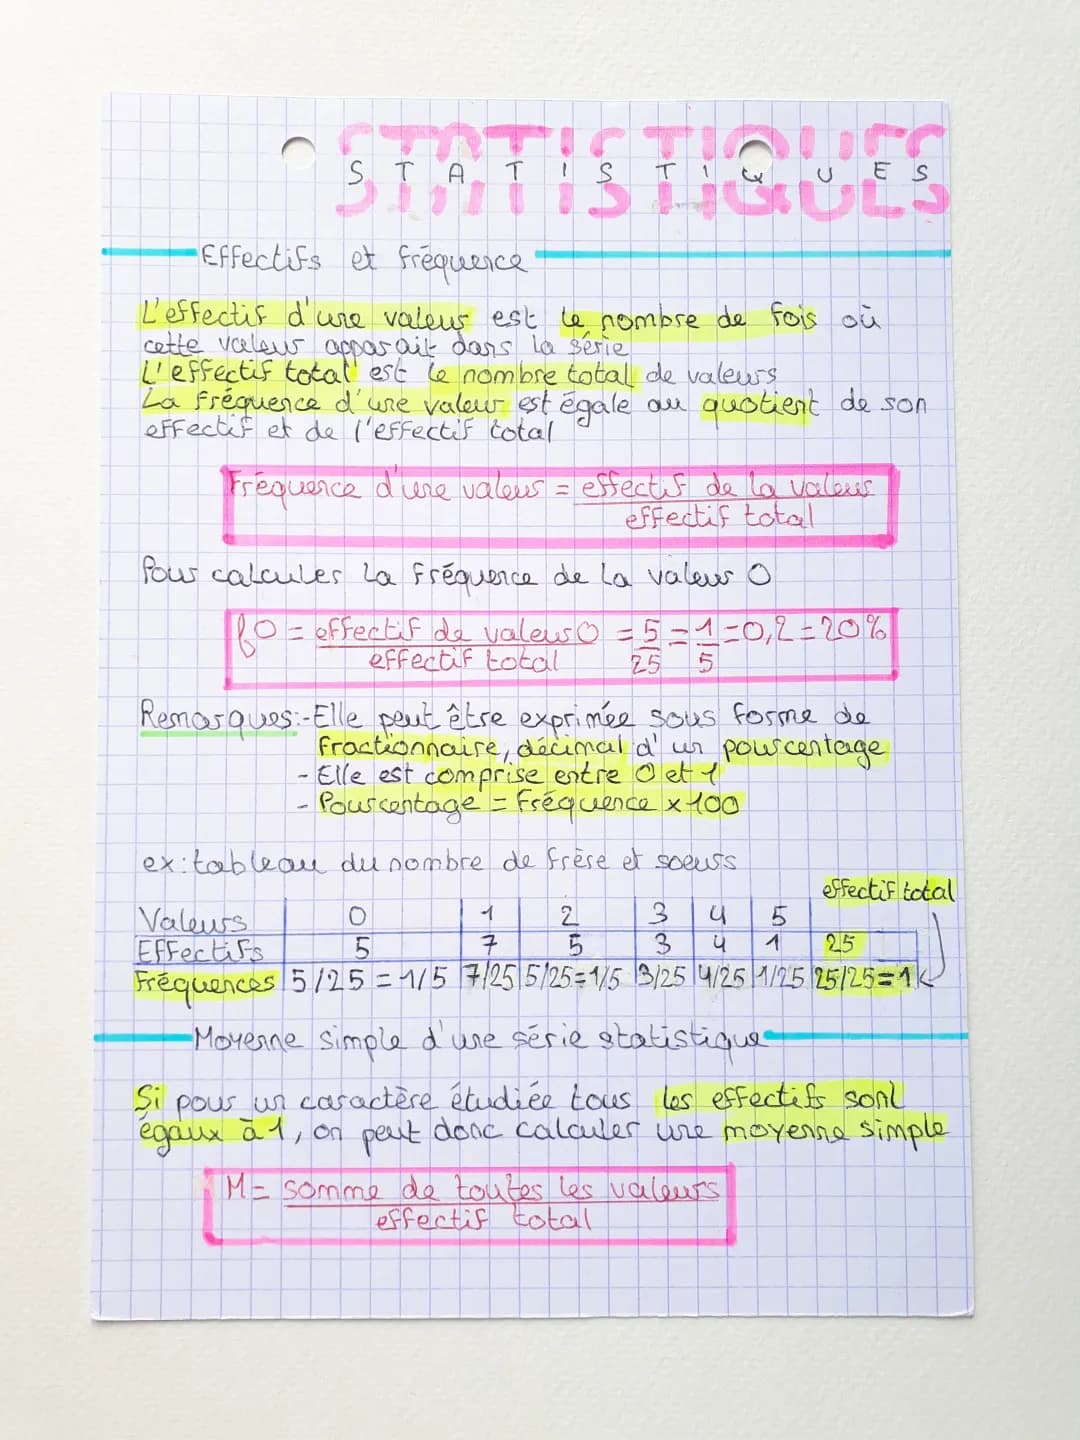 STATISTIQUES
STATISTIQUES
Effectifs et fréquence
L'effectif d'une valeur est le nombre de fois où
cette valeur apparait dans la série
L'effectif total est le nombre total de valeurs
La fréquence d'une valeur est égale au quotient de son
effectif et de l'effectif total
Fréquence d'une valeur = effectif de la valeur
effectif total
Pour calculer la fréquence de la valeur 0
f0 = effectif de valeur 0 = 5 = 1 = 0,2 = 20%
effectif total 25 5
Remarques:-Elle peut être exprimée sous forme de
fractionnaire, décimal d'un pourcentage
- Elle est comprise entre 0 et 1
- Pourcentage = Fréquence x 100
ex: tableau du nombre de frère et soeurs
effectif total
Valeurs 0 1 2 3 4 5
Effectifs 5 7 5 3 4 1 25
Fréquences 5/25 = 1/5 7/25 5/25=1/5 3/25 4/25 1/25 25/25=1
Moyenne simple d'une série statistique
Si pour un caractère étudiée tous les effectifs sont
égaux à 1, on peut donc calculer une moyenne simple
M = somme de toutes les valeurs
effectif total